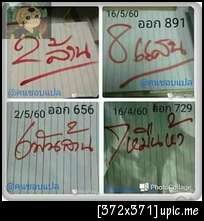 2 ล้าน
@คนชอบแปล
16/5/60 ออก 891
8 แสน
@คนชอบแปล
2/5/60 ออก 656
6 พันล้าน
@คนชอบแปล
16/4/60 ออก 729
7 หมื่นห้า
PhotoCollage
[372x371] upic.me